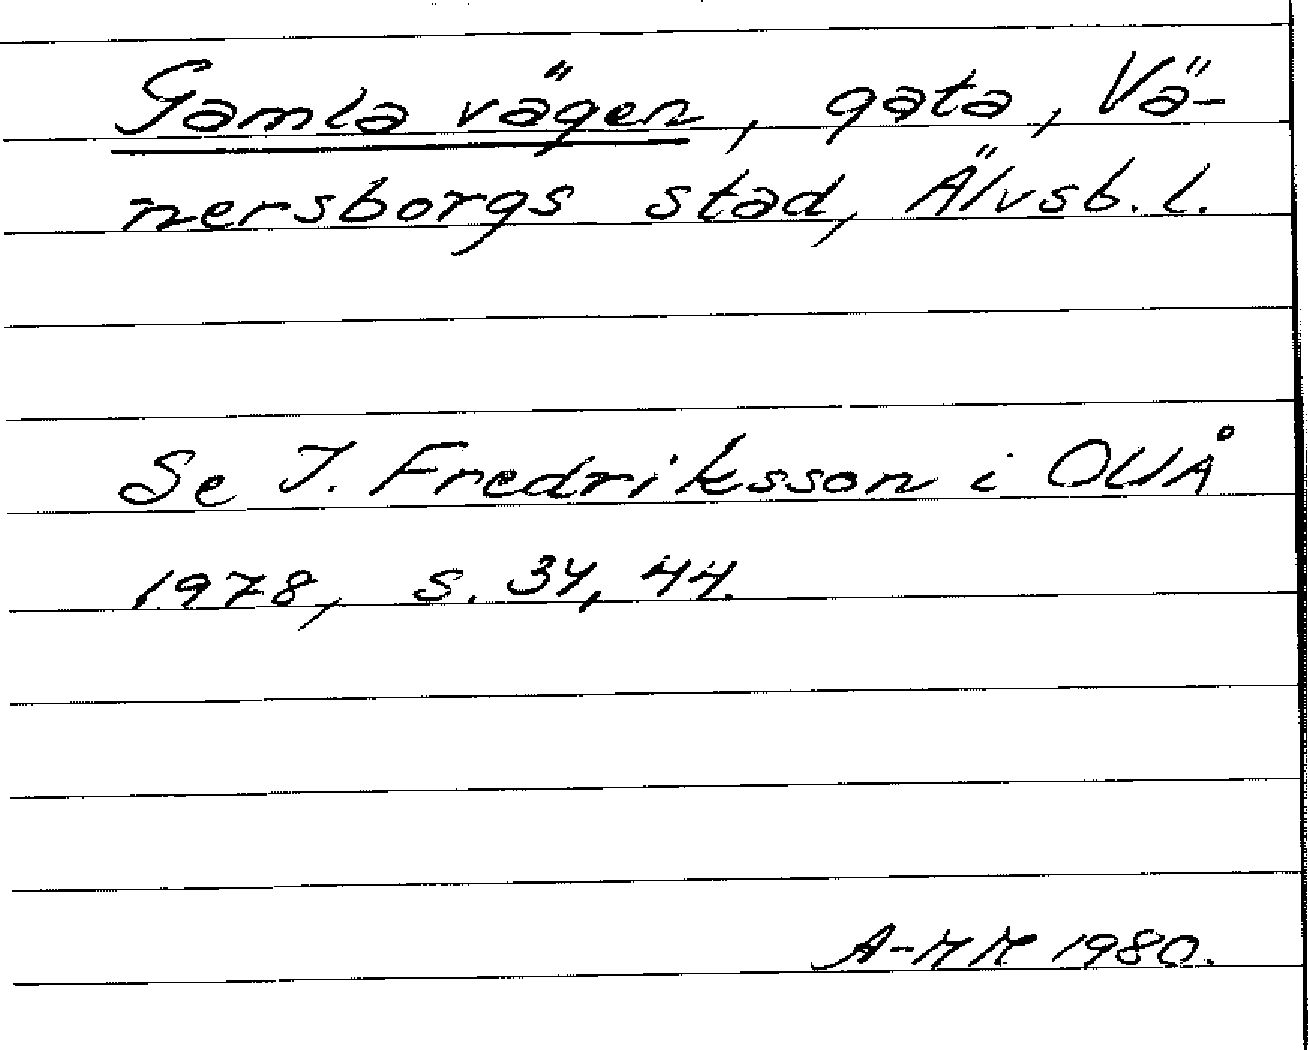 Gamla vägen, gata, Vä-
nersborgs stad, Älvsb. l.
Se I. Fredriksson i OUÅ
1978, s. 34, 44.
A-MM 1980.